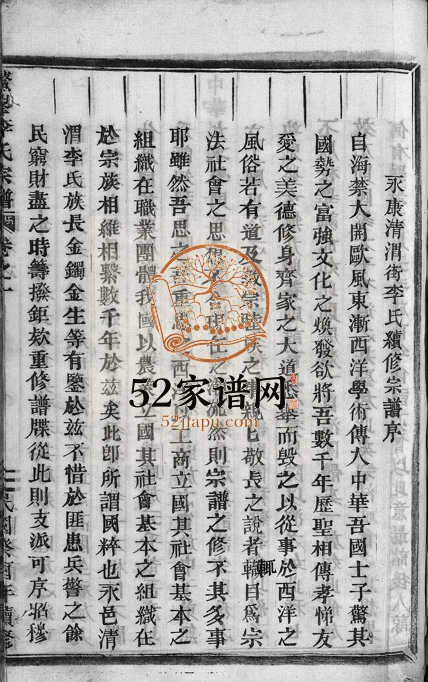 永康清渭街李氏續修宗譜序
自海禁大開歐風東漸西洋學術傳入中華吾國士子驚其
國勢之富強文化之煥發欲將吾數千年歷聖相傳孝悌友
愛之美德修身齊家之大道 而毀之以從事於西洋之
風俗若有道及敬宗 之 敬長之說者輒目為宗
法社會之思想 然則宗譜之修不其多事
耶雖然吾思之 重思之西 工商立國其社會基本之
組織在職業團體我國以農立國其社會基本之組織在
於宗族相維相繫數千年於茲矣此卽所謂國粹也永邑清
渭李氏族長金鐲金生等有鑒於茲不惜於匪患兵警之餘
民窮財盡之時籌撥鉅欵重修譜牒從此則支派可序昭穆
李氏宗譜 卷之一
民國癸酉年續修
52家谱网
52jiapu.com